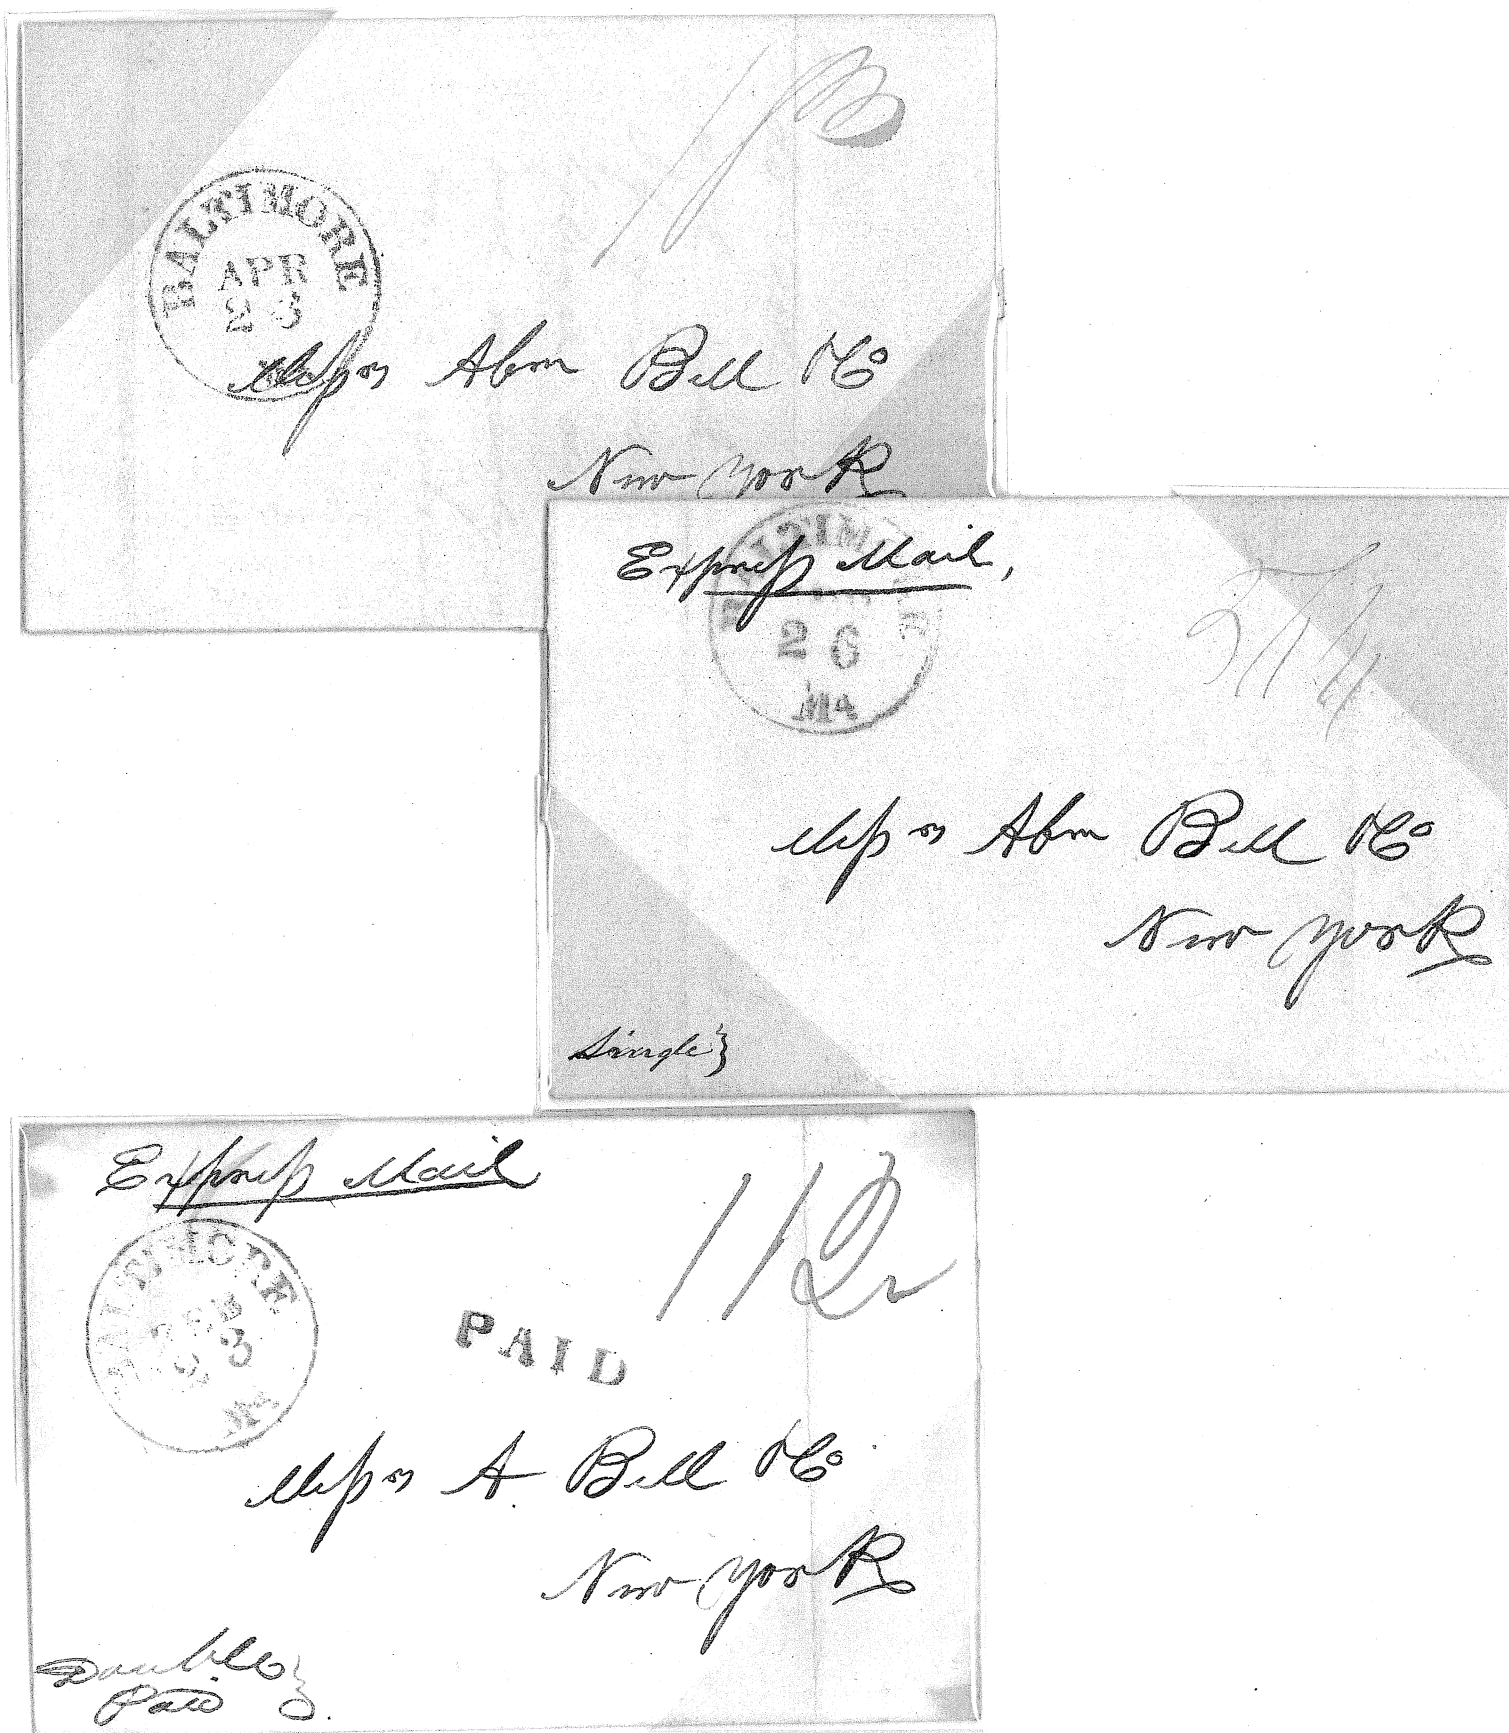 BALTIMORE
APR
23
Messrs Abm Bell & Co
New York
Express Mail,
26
Md
Messrs Abm Bell & Co
New York
Single}
Express Mail
112
BALTIMORE
FEB
23
Md
PAID
Messrs A. Bell & Co
New York
Double}
Paid